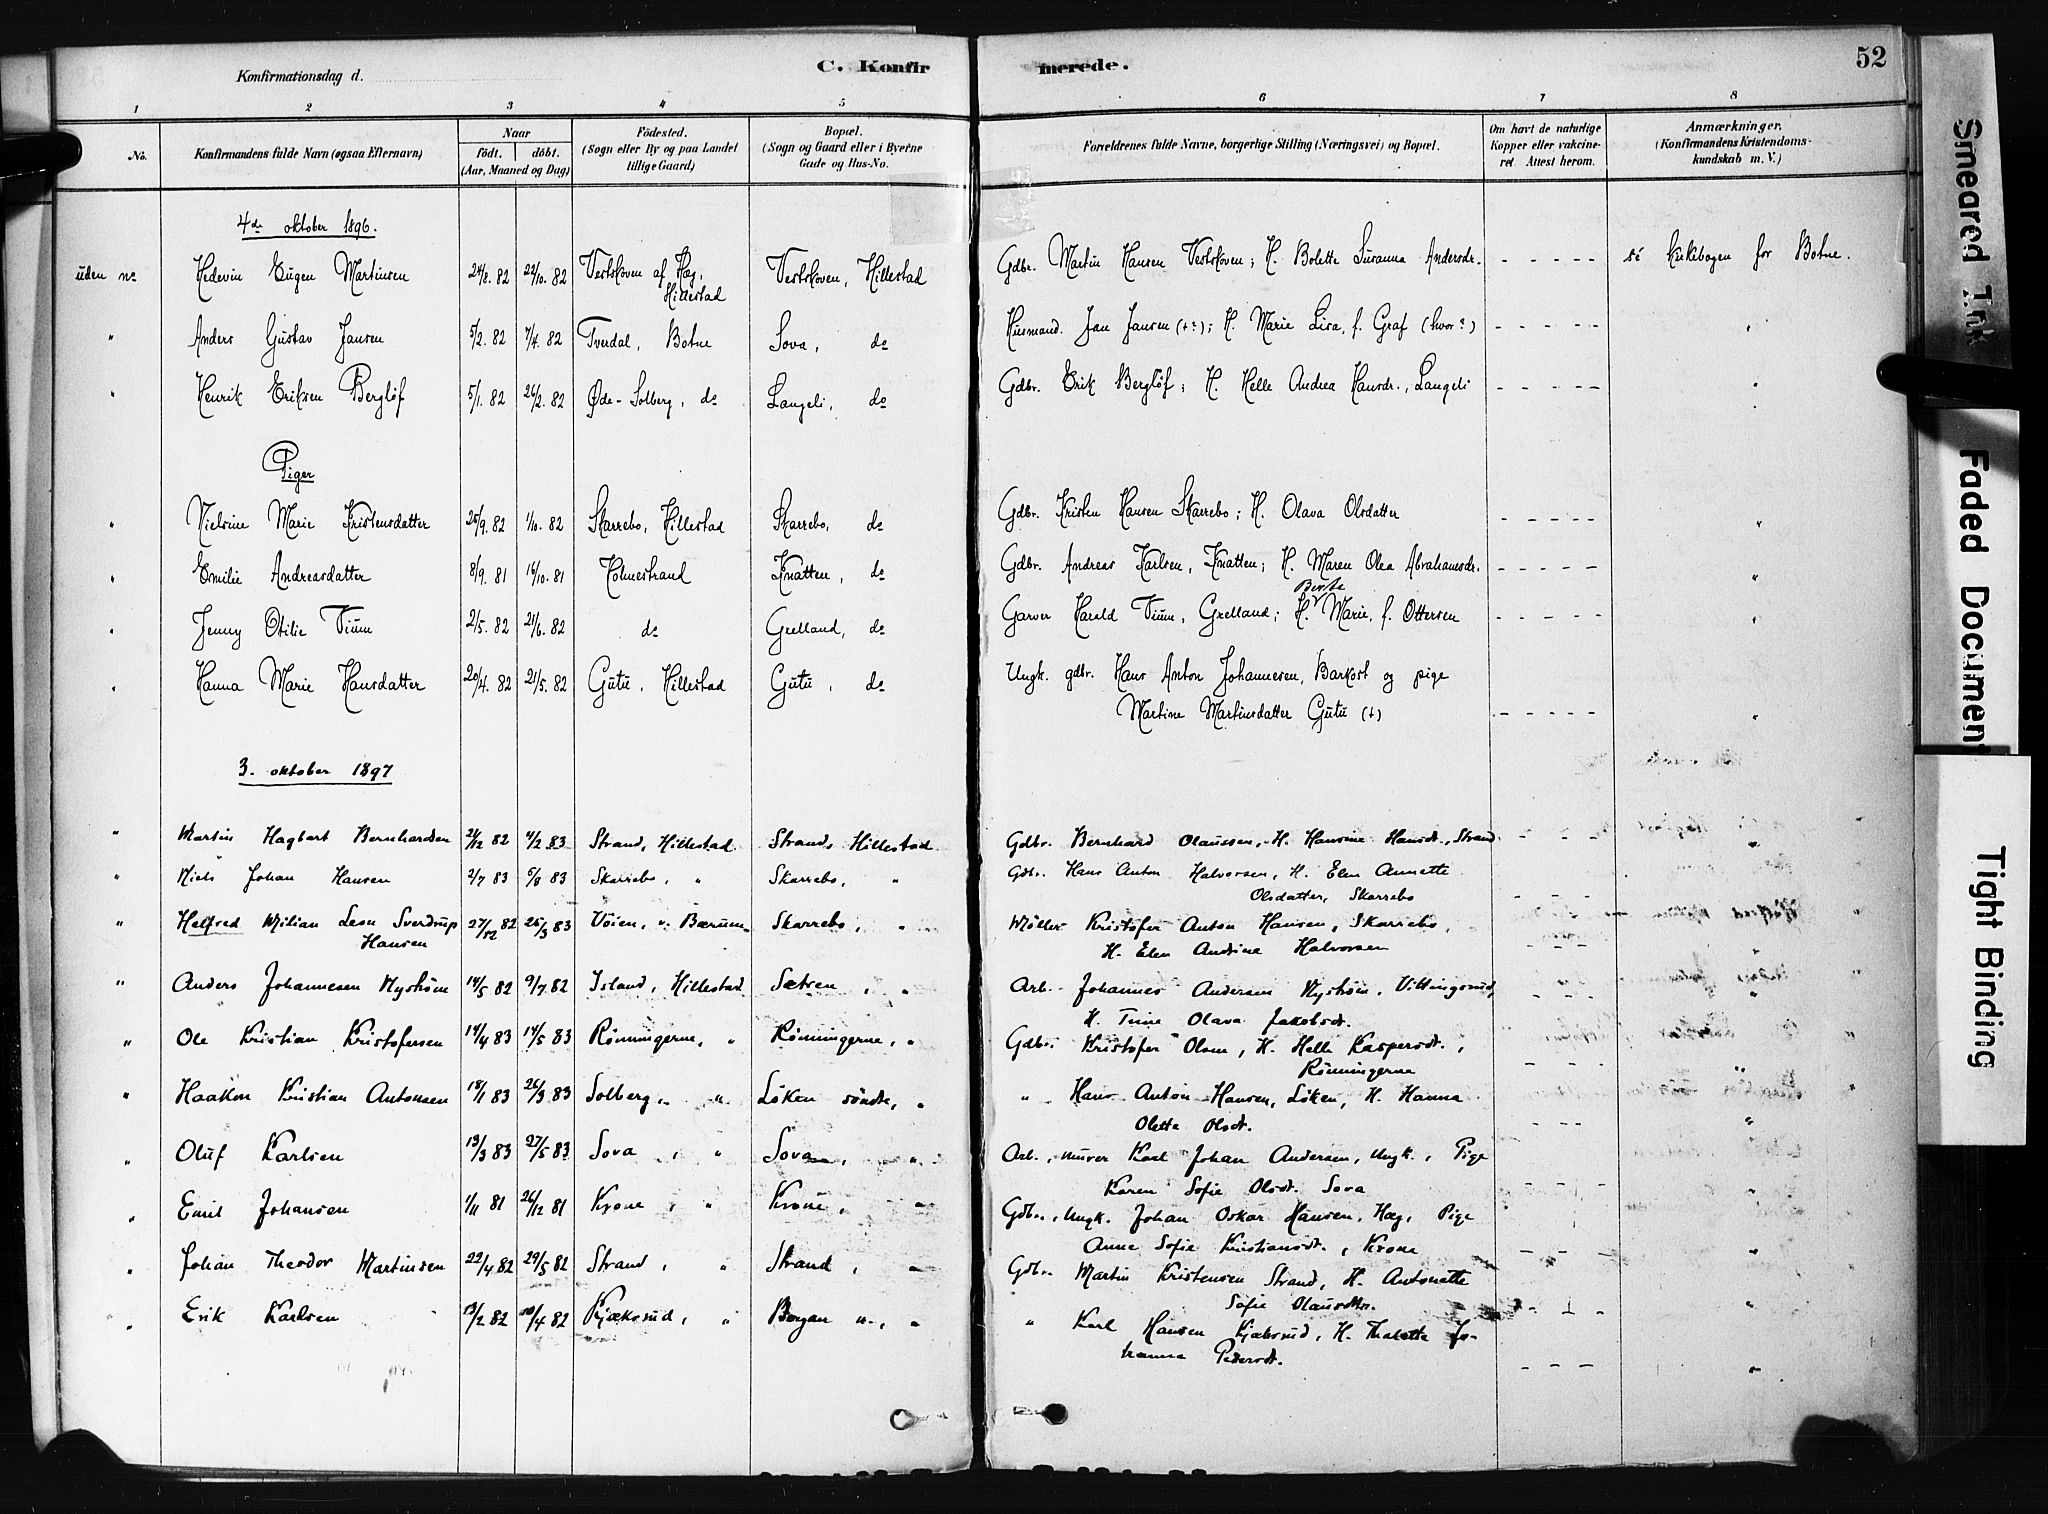 52
Konfirmationsdag d.
C. Konfirmerede.
1 2 3 4 5 6 7 8
No.
Konfirmandens fulde Navn (ogsaa Efternavn)
Naar
födt. döbt.
(Aar, Maaned og Dag)
Födested.
(Sogn eller By og paa Landet
tillige Gaard)
Bopæl.
(Sogn og Gaard eller i Byerne
Gade og Hus-No.
Forældrenes fulde Navne, borgerlige Stilling (Næringsvei) og Bopæl.
Om havt de naturlige
Kopper eller vakcine-
ret Attest herom.
Anmærkninger.
(Konfirmandens Kristendoms-
kundskab m. V.)
4de oktober 1896.
uden no Hedevin Eugen Martinsen 24/8. 82 22/10. 82 Vestskoven af Hæg, Hillestad Vestskoven, Hillestad Gdbr. Martin Hansen Vestskoven; H. Bolette Susanna Andersdr. - - - - - sé kirkebogen for Botne.
" Anders Gustav Jansen 5/2. 82 7/4. 82 Tverdal, Botne Sova, do Husmand. Jan Jansen (+?); H. Marie Lisa, f. Graf (hvor?) - - - - - "
" Henrik Eriksen Berglöf 5/1. 82 26/2. 82 Øde-Solberg, do Langeli, do Gdbr. Erik Berglöf; H. Helle Andrea Hansdr., Langeli - - - - - "
Piger
" Nielsine Marie Kristensdatter 25/9. 82 1/10. 82 Skarrebo, Hillestad Skarrebo, do Gdbr. Kristen Hansen Skarrebo; H. Olava Olsdatter - - - - - "
" Emilie Andreasdatter 8/9. 81 16/10. 81 Holmestrand Knatten, do Gdbr. Andreas Karlsen, Knatten; H. Maren Olea Abrahamsdr. - - - - - "
" Jenny Otilie Tiüm 2/5. 82 21/6. 82 do Grelland, do Garver Harald Tiüm, Grelland; H. Marie, f. Ottersen - - - - - "
" Hanna Marie Hansdatter 20/4. 82 21/5. 82 Gutu, Hillestad Gutu, do Ungk. gdbr. Hans Anton Johannesen, Barkost og pige
Martine Martinsdatter Gutu (+) - - - - - "
3. oktober 1897
" Martin Hagbart Bernhardsen 2/12 82 4/2 83 Strand, Hillestad Strand, Hillestad Gdbr. Bernhard Olaussen, H. Hansine Hansdt., Strand - - - "
" Niels Johan Hansen 2/7 83 5/8 83 Skarrebo, " Skarrebo, " Gdbr. Hans Anton Halvorsen, H. Elen Annette
Olsdatter, Skarrebo - - -
" Helfred Milian Leon Sverdrup 27/12 82 25/3 83 Vöien, v. Bærum Skarrebo, " Möller Kristofer Anton Hansen, Skarrebo,
Hansen H. Elen Andrine Halvorsen - - - "
" Anders Johannesen Nyström 14/5 82 9/7 82 Island, Hillestad Sætren, " Arb. Johannes Andersen Nyström, Vittingsrud,
H. Trine Olava Jakobsdt. - - - "
" Ole Kristian Kristofersen 14/4 83 14/5 83 Rönningerne, " Rönningerne, " Gdbr. Kristofer Olsen, H. Helle Kaspersdt.,
Rönningerne - - - "
" Haakon Kristian Antonsen 18/1 83 26/3 83 Solberg, " Löken söndre, " " Hans Anton Hansen, Löken, H. Hanna
Olette Olsdt. - - - "
" Oluf Karlsen 13/3 83 27/5 83 Sova, " Sova, " Arb., murer Karl Johan Andersen, Ungk., Pige
Karen Sofie Olsdt. Sova - - - "
" Emil Johansen 1/11 81 26/12 81 Krone, " Krone, " Gdbr., Ungk. Johan Oskar Hansen, Hæg, Pige
Anne Sofie Kristiansdt., Krone - - - "
" Johan Theodor Martinsen 22/4 82 29/5 82 Strand, " Strand, " Gdbr. Martin Kristensen Strand, H. Antonette
Sofie Olausdtr. - - - "
" Erik Karlsen 13/2 82 10/4 82 Kjæksrud, " Bergan n., " " Karl Hansen Kjæksrud, H. Thalette Jo-
hanna Pedersdt. - - - "
Smeared Ink
Faded Document
Tight Binding